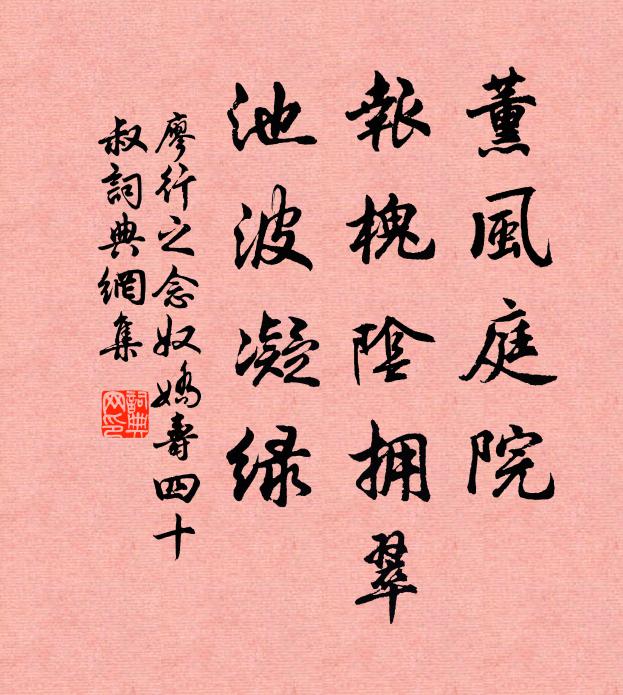 薰風庭院
報槐陰拥翠
池波凝绿
廖行之念奴嬌壽四十
叔詞典網集
詞典网印